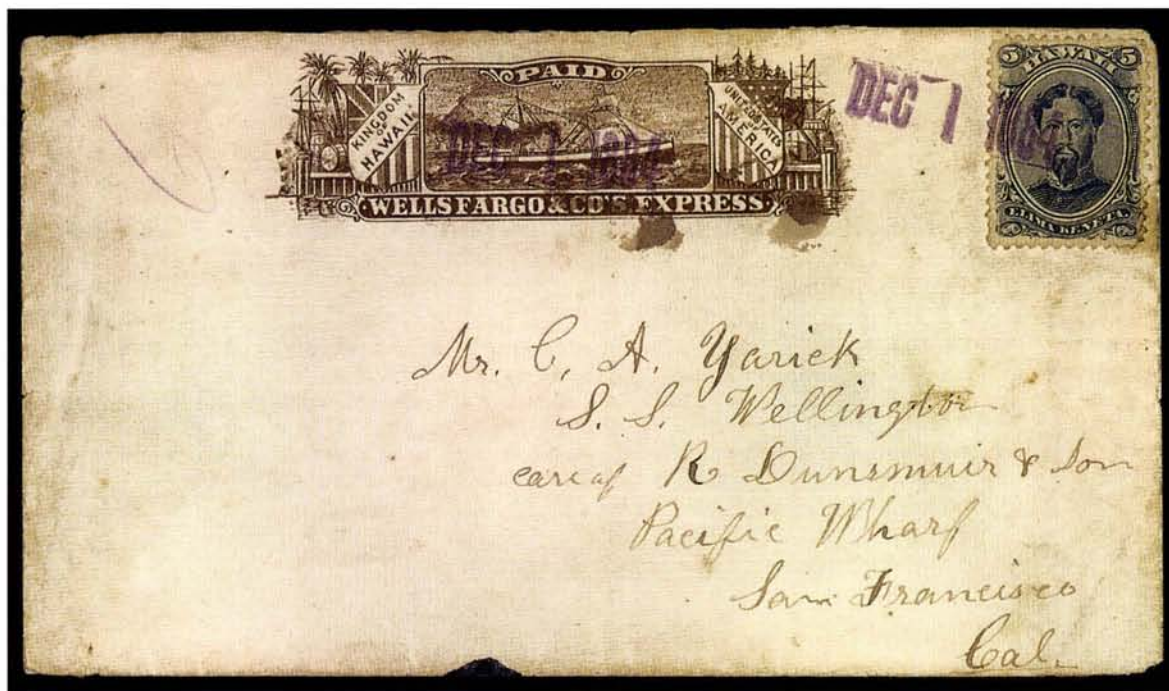 PAID
KINGDOM OF HAWAII
UNITED STATES AMERICA
DEC 1
WELLS FARGO & CO'S EXPRESS
DEC 1
5 HAWAII 5
ELIMA KENETA
Mr. C. A. Yarick
S. S. Wellington
care of R Dunsmuir & Son
Pacific Wharf
San Francisco
Cal.